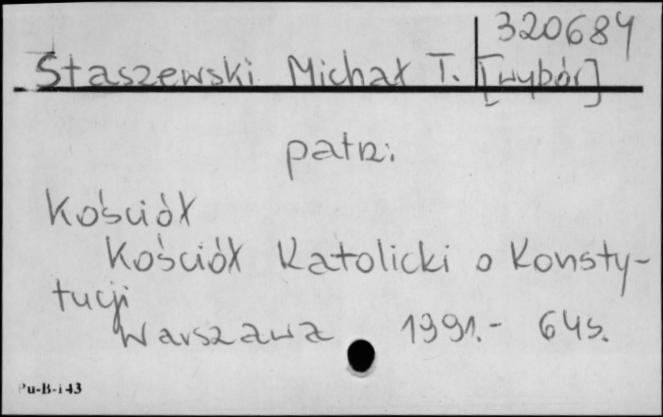 320684
Staszewski Michał T. [wybór]
patrz:
Kościół
Kościół Katolicki o Konsty-
tucji
Warszawa 1991.- 64s.
Pu-B-143